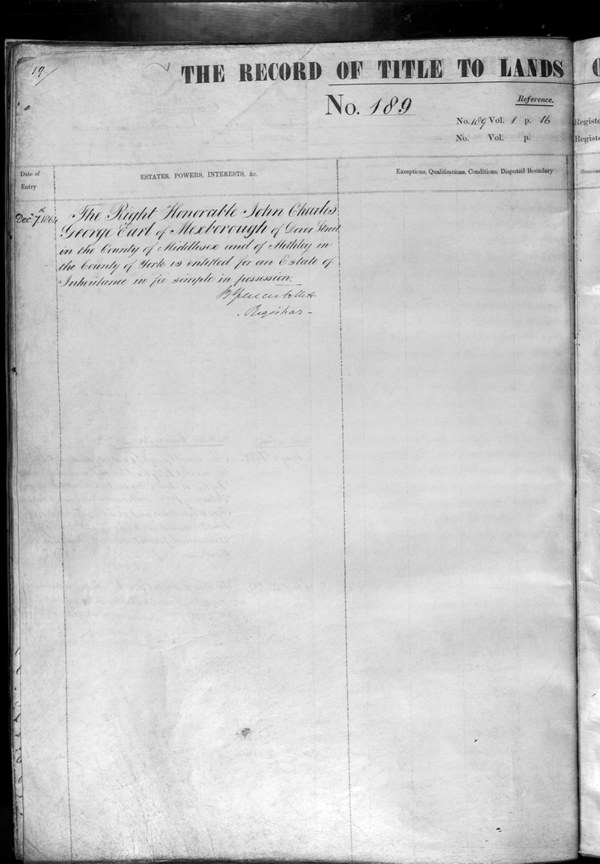 19/
THE RECORD OF TITLE TO LANDS
No. 189
Reference.
No. 189 Vol. 1 p. 16
No. Vol. p.
Date of
Entry
ESTATES, POWERS, INTERESTS, &c.
Exceptions, Qualifications, Conditions, Disputed Boundary
Decr 7th 1864
The Right Honorable John Charles
George Earl of Mexborough of Dover Street
in the County of Middlesex and of Methley in
the County of York is entitled for an Estate of
Inheritance in fee simple in possession.
Registrar
Registe
Registe